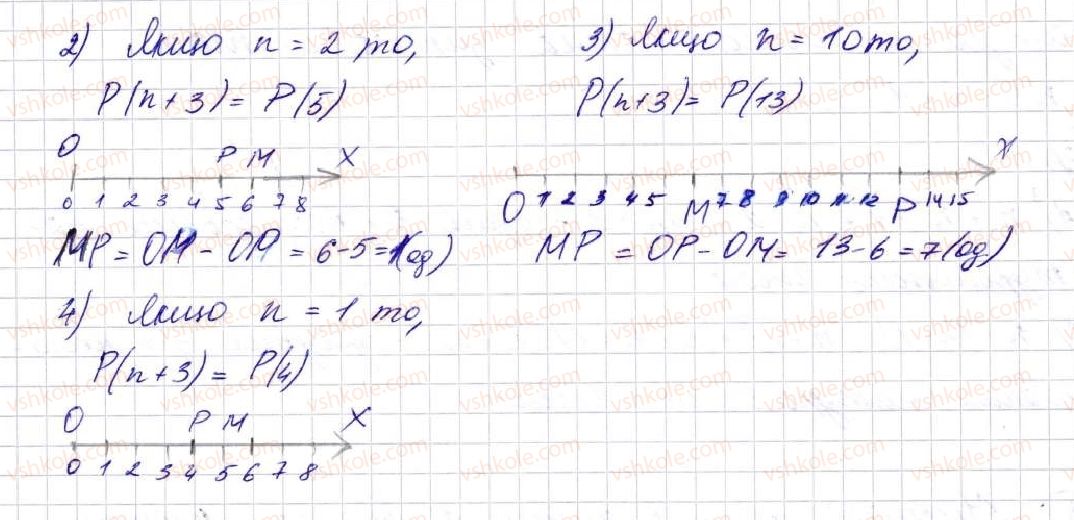 2) Якщо n = 2 то,
P(n+3) = P(5)
O P M X
0 1 2 3 4 5 6 7 8
MP = OM - OP = 6-5=1(од)
3) Якщо n = 10 то,
P(n+3) = P(13)
X
O 1 2 3 4 5 M 7 8 9 10 11 12 P 14 15
MP = OP - OM = 13-6 = 7(од)
4) Якщо n = 1 то,
P(n+3) = P(4)
O P M X
0 1 2 3 4 5 6 7 8
vshkole.com